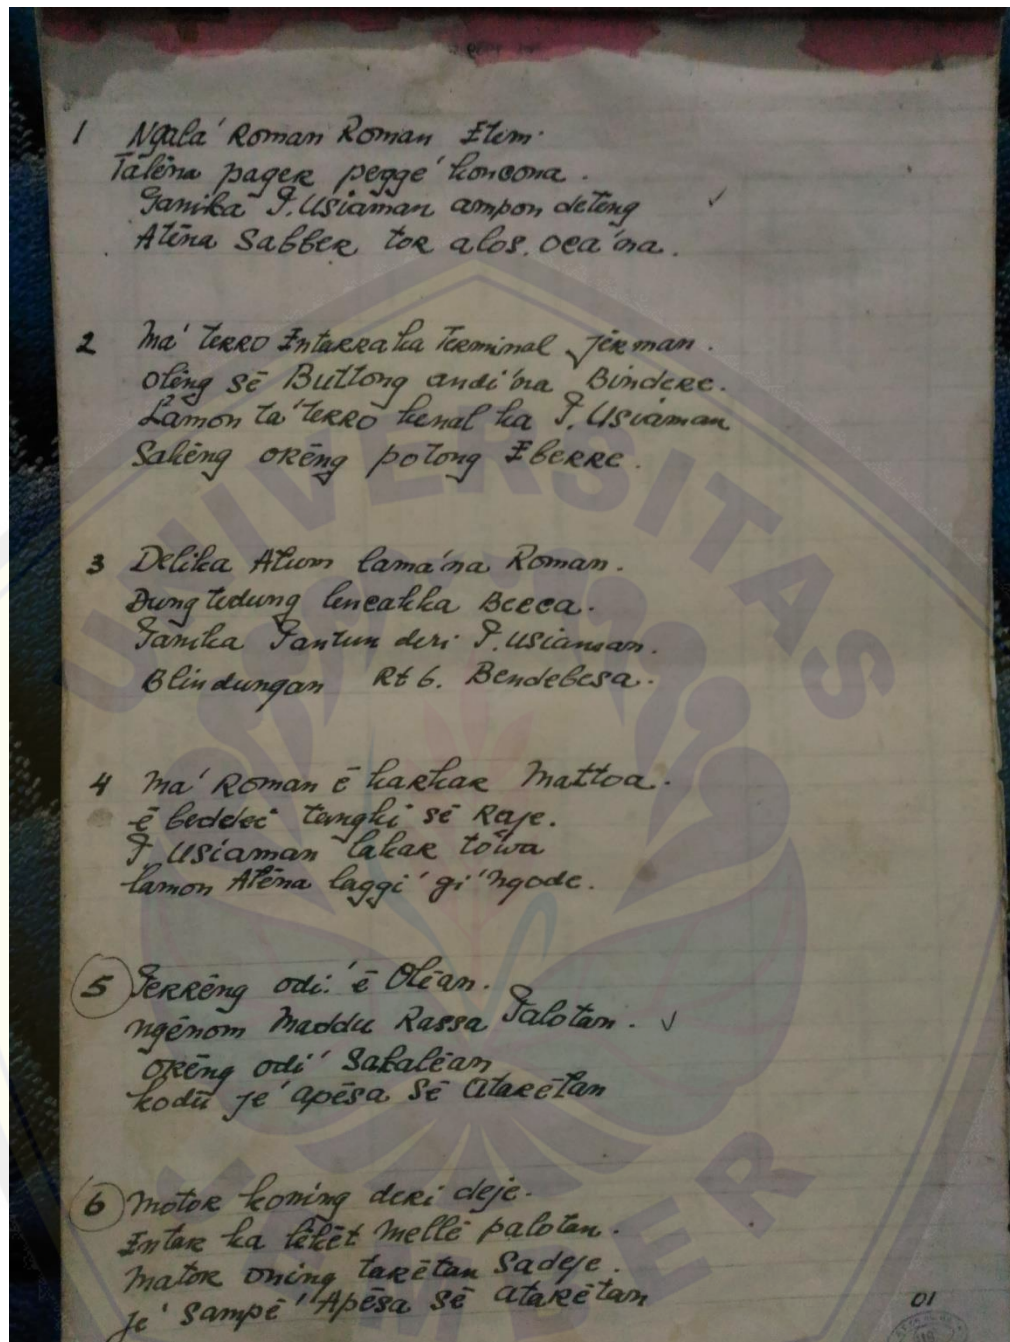 1 Ngala' Roman Roman Etem.
Talēna pager pegge' koncona.
Panika P. Usiaman ampon deteng
Atēna Sabber tor alos. oca'na.
2 Ma' terro Entarraka Terminal Jerman.
Olēng sē Buttong andi'na Bindere.
Lamon ta' terro kenal ka P. Usiaman
Sakēng orēng potong Eberre.
3 Delika Atum lama'na Roman.
Dung tedung kncakka Becca.
Panika Pantun deri P. Usiaman.
Blindungan Rt 6. Bendebesa.
4 Ma' Roman ē karkar Mattoa.
ē beddei tangki sē Raje.
P. Usiaman lakar towa
lamon Atēna laggi' gi' ngode.
5 Perrēng odi' ē Olēan.
ngēnom Maddu Rassa Palotan.
orēng odi' Sakalēan
kodū je' apēsa Sē atarētan
6 Motor koning deri deje.
Entar ka lēkēt Mellē palotan.
Mator oning tarētan Sadeje.
je' Sampē' Apēsa Sē atarētan
01
UNIVERSITAS
JEMBER